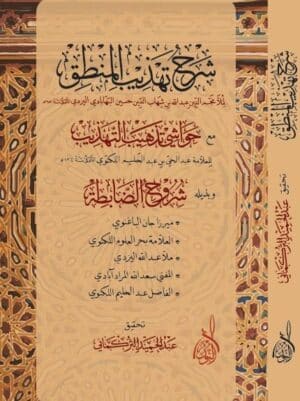 شرح تهذيب المنطق
لملا نجم الدين عبدالله بن شهاب الدين حسين الشهابادي اليزدي
مع حواشي تذهيب التهذيب
للعلامة عبد الحي بن عبد الحليم اللكنوي
ويليه شروح الضابطة
* ميرزا جان الباغنوي
* العلامة بحر العلوم اللكنوي
* ملا عبد الله اليزدي
* المفتي سعد الله المرادآبادي
* الفاضل عبد الحليم اللكنوي
تحقيق
عبد الحميد التركماني
شرح تهذيب المنطق
عبد الحميد التركماني